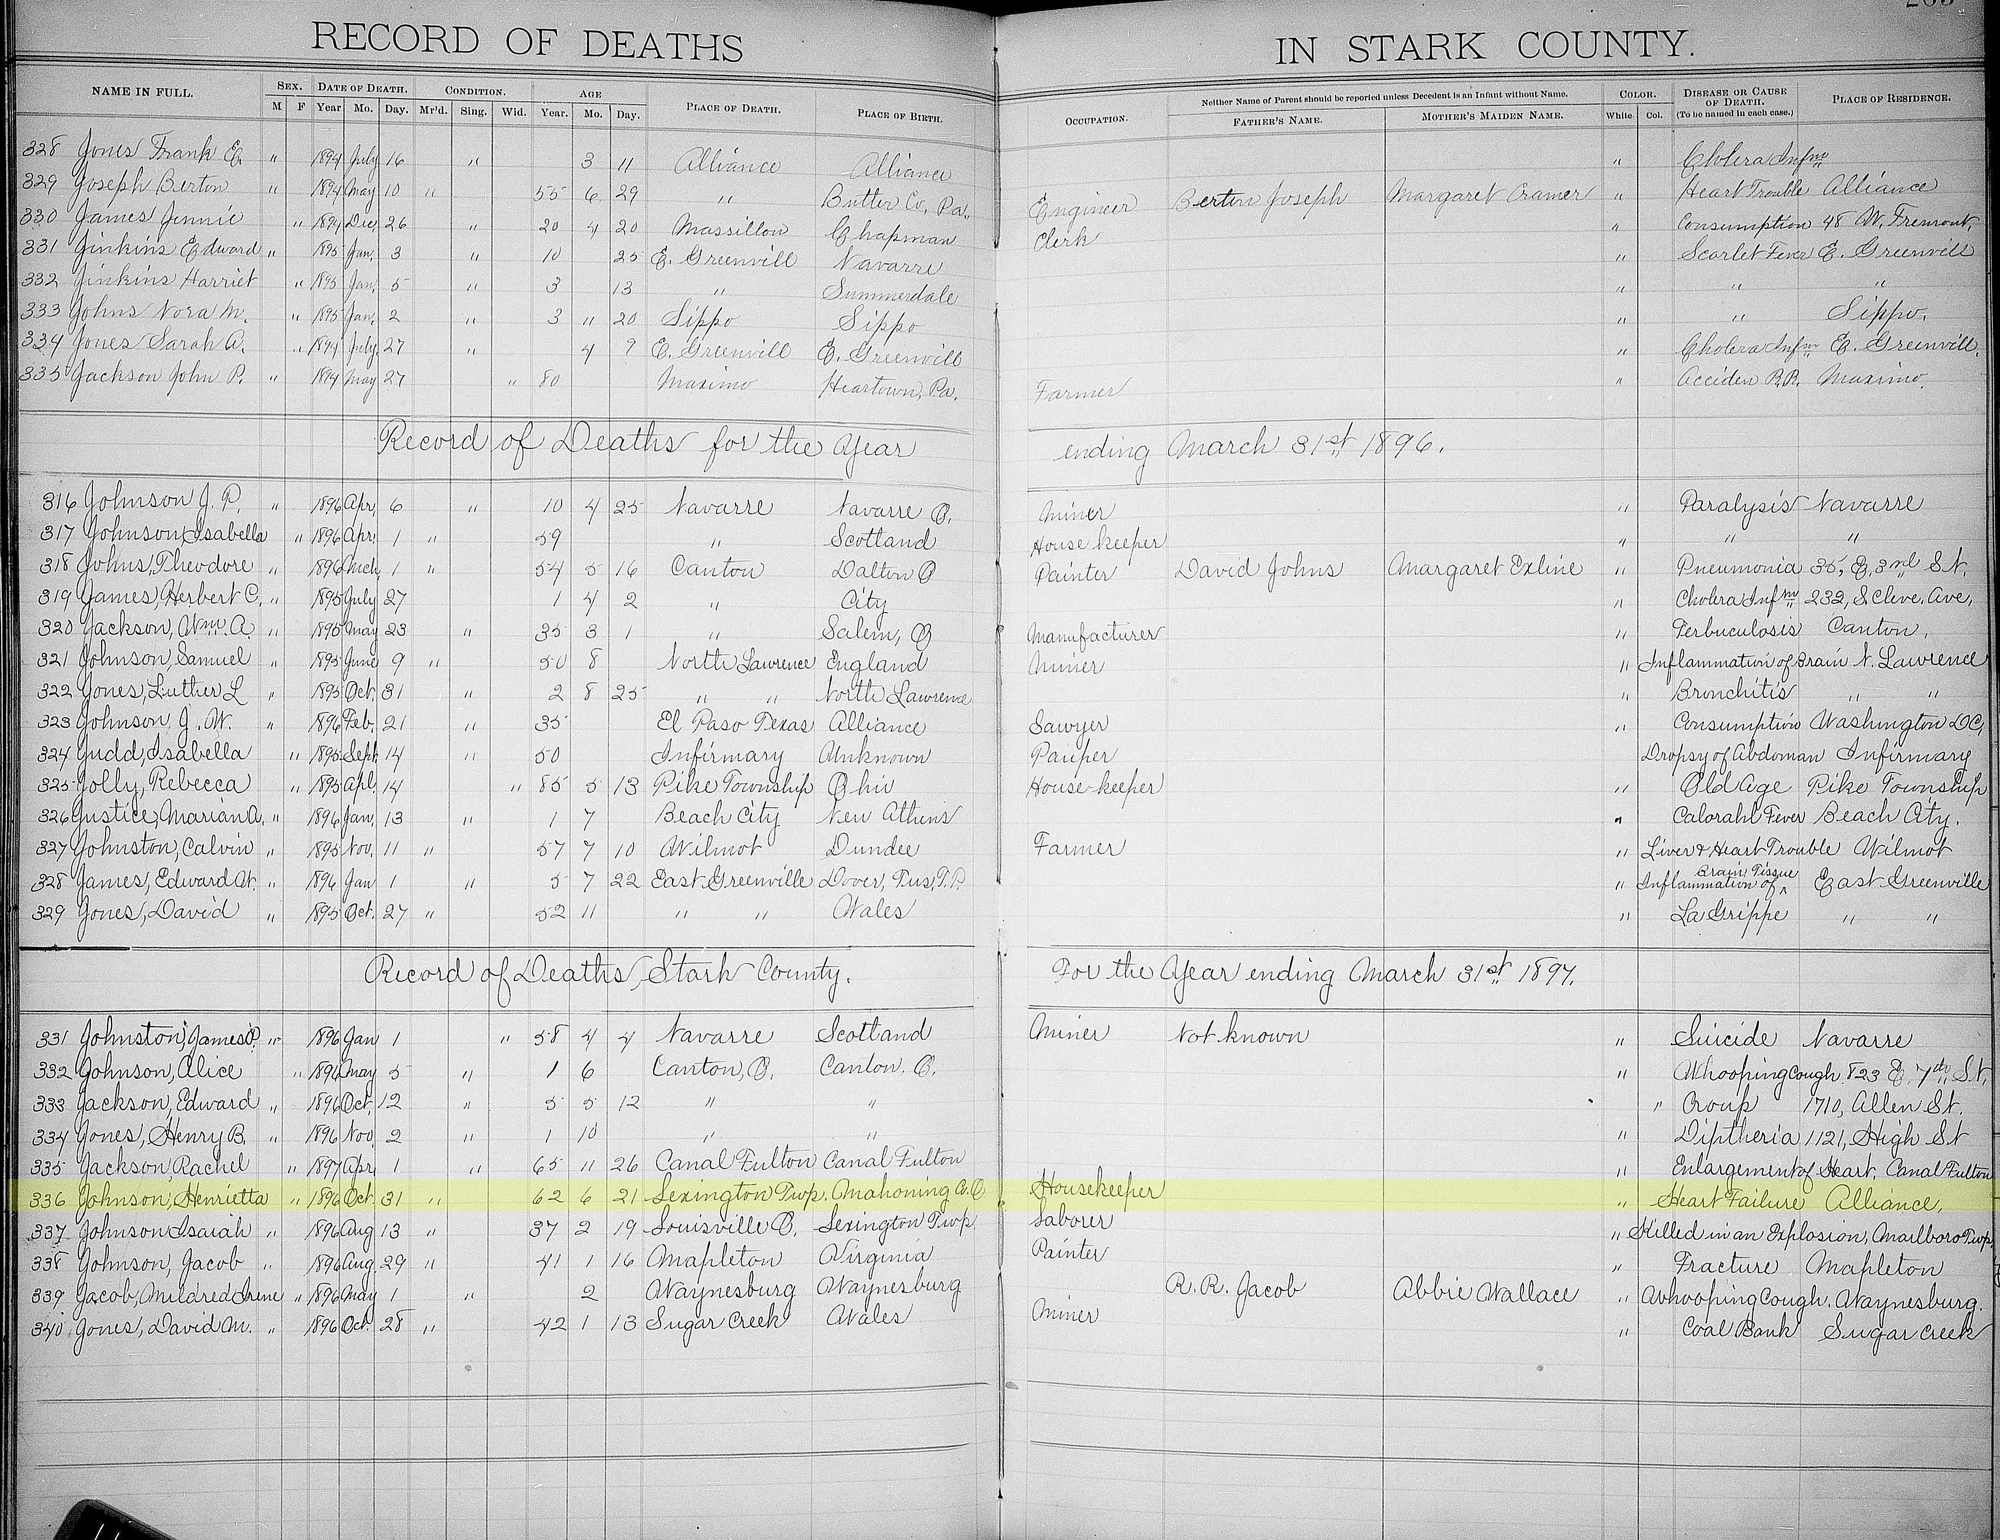 RECORD OF DEATHS IN STARK COUNTY.
NAME IN FULL. SEX. DATE OF DEATH. CONDITION. AGE PLACE OF DEATH. PLACE OF BIRTH. OCCUPATION. Neither Name of Parent should be reported unless Decedent is an Infant without Name. COLOR. DISEASE OR CAUSE OF DEATH. (To be named in each case.) PLACE OF RESIDENCE.
M F Year Mo. Day. Mr'd. Sing. Wid. Year. Mo. Day. FATHER'S NAME. MOTHER'S MAIDEN NAME. White Col.
328 Jones Frank E. " 1894 July 16 " 3 11 Alliance Alliance " Cholera Infm
329 Joseph Berton " 1894 May 10 " 55 6 29 " Butler Co, Pa. Engineer Berton Joseph Margaret Cramer " Heart Trouble Alliance
330 James Jennie " 1894 Dec. 26 " 20 4 20 Massillon Chapman Clerk " Consumption 48 W. Tremont.
331 Jinkins Edward " 1895 Jan. 3 " 10 25 E. Greenvill Navarre " Scarlet Fever E. Greenvill
332 Jinkins Harriet " 1895 Jan. 5 " 3 13 " Summerdale " " "
333 Johns Nora M. " 1895 Jan. 2 " 3 11 20 Sippo Sippo " " Sippo.
334 Jones Sarah A. " 1894 July 27 " 4 9 E. Greenvill E. Greenvill " Cholera Infm E. Greenvill.
335 Jackson John P. " 1894 May 27 " 80 Maximo Heartown, Pa. Farmer " Acciden R.R. Maximo.
Record of Deaths for the Year ending March 31st 1896.
316 Johnson J. P. " 1896 Apr. 6 " 10 4 25 Navarre Navarre O. Miner " Paralysis Navarre
317 Johnson, Isabella " 1896 Apr. 1 " 59 " Scotland House keeper " " "
318 Johns, Theodore " 1896 Mch. 1 " 54 5 16 Canton Dalton O Painter David Johns Margaret Exline " Pneumonia 35, E. 3rd St.
319 James, Herbert C. " 1895 July 27 1 4 2 " City " Cholera Infm 232, S. Cleve. Ave,
320 Jackson, Wm. A. " 1895 May 23 " 35 3 1 " Salem, O Manufacturer " Terbuculosis Canton.
321 Johnson, Samuel " 1895 June 9 " 50 8 North Lawrence England Miner " Inflammation of Brain N. Lawrence
322 Jones, Luther L " 1895 Oct. 31 " 2 8 25 " " North Lawrence " Bronchitis " "
323 Johnson J. W. " 1896 Feb. 21 " 35 El Paso Texas Alliance Sawyer " Consumption Washington D.C.
324 Judd, Isabella " 1895 Sept 14 " 50 Infirmary Unknown Pauper Dropsy of Abdoman Infirmary
325 Jolly, Rebecca " 1895 Apl. 14 " 85 5 13 Pike Township Ohio House-keeper " Old Age Pike Township
326 Justice, Marian A. " 1896 Jan. 13 " 1 7 Beach City New Athens " Calorahl Fever Beach City.
327 Johnston, Calvin " 1895 Nov. 11 " 57 7 10 Wilmot Dundee Farmer " Liver & Heart Trouble Wilmot
328 James, Edward W. " 1896 Jan 1 " 5 7 22 East Greenville Dover, Tus, T.P. " Inflammation of Brain Tissue East Greenville
329 Jones, David " 1895 Oct. 27 " 52 11 " " Wales " La Grippe " "
Record of Deaths, Stark County. For the Year ending March 31st 1897.
331 Johnston, James P. " 1896 Jan 1 " 58 4 4 Navarre Scotland Miner Not known " Suicide Navarre
332 Johnson, Alice " 1896 May 5 " 1 6 Canton, O. Canton. O. " Whooping Cough 823 E. 7th St.
333 Jackson, Edward " 1896 Oct. 12 " 5 5 12 " " " Croup 1710, Allen St.
334 Jones, Henry B. " 1896 Nov. 2 " 1 10 " " " Diptheria 1121, High St
335 Jackson, Rachel " 1897 Apr 1 " 65 11 26 Canal Fulton Canal Fulton " Enlargement of Heart. Canal Fulton
336 Johnson, Henrietta " 1896 Oct. 31 " 62 6 21 Lexington Twp. Mahoning Co. O Housekeeper " Heart Failure Alliance,
337 Johnson Isaiah " 1896 Aug 13 " 37 2 19 Louisville O. Lexington Twp. Laborer " Killed in an Explosion, Marlboro Twp.
338 Johnson, Jacob " 1896 Aug. 29 " 41 1 16 Mapleton Virginia Painter " Fracture Mapleton
339 Jacob, Mildred Irene " 1896 May 1 " 2 Waynesburg Waynesburg R. R. Jacob Abbie Wallace " Whooping Cough. Waynesburg.
340 Jones, David M. " 1896 Oct. 28 " 42 1 13 Sugar Creek Wales Miner " Coal Bank Sugar Creek